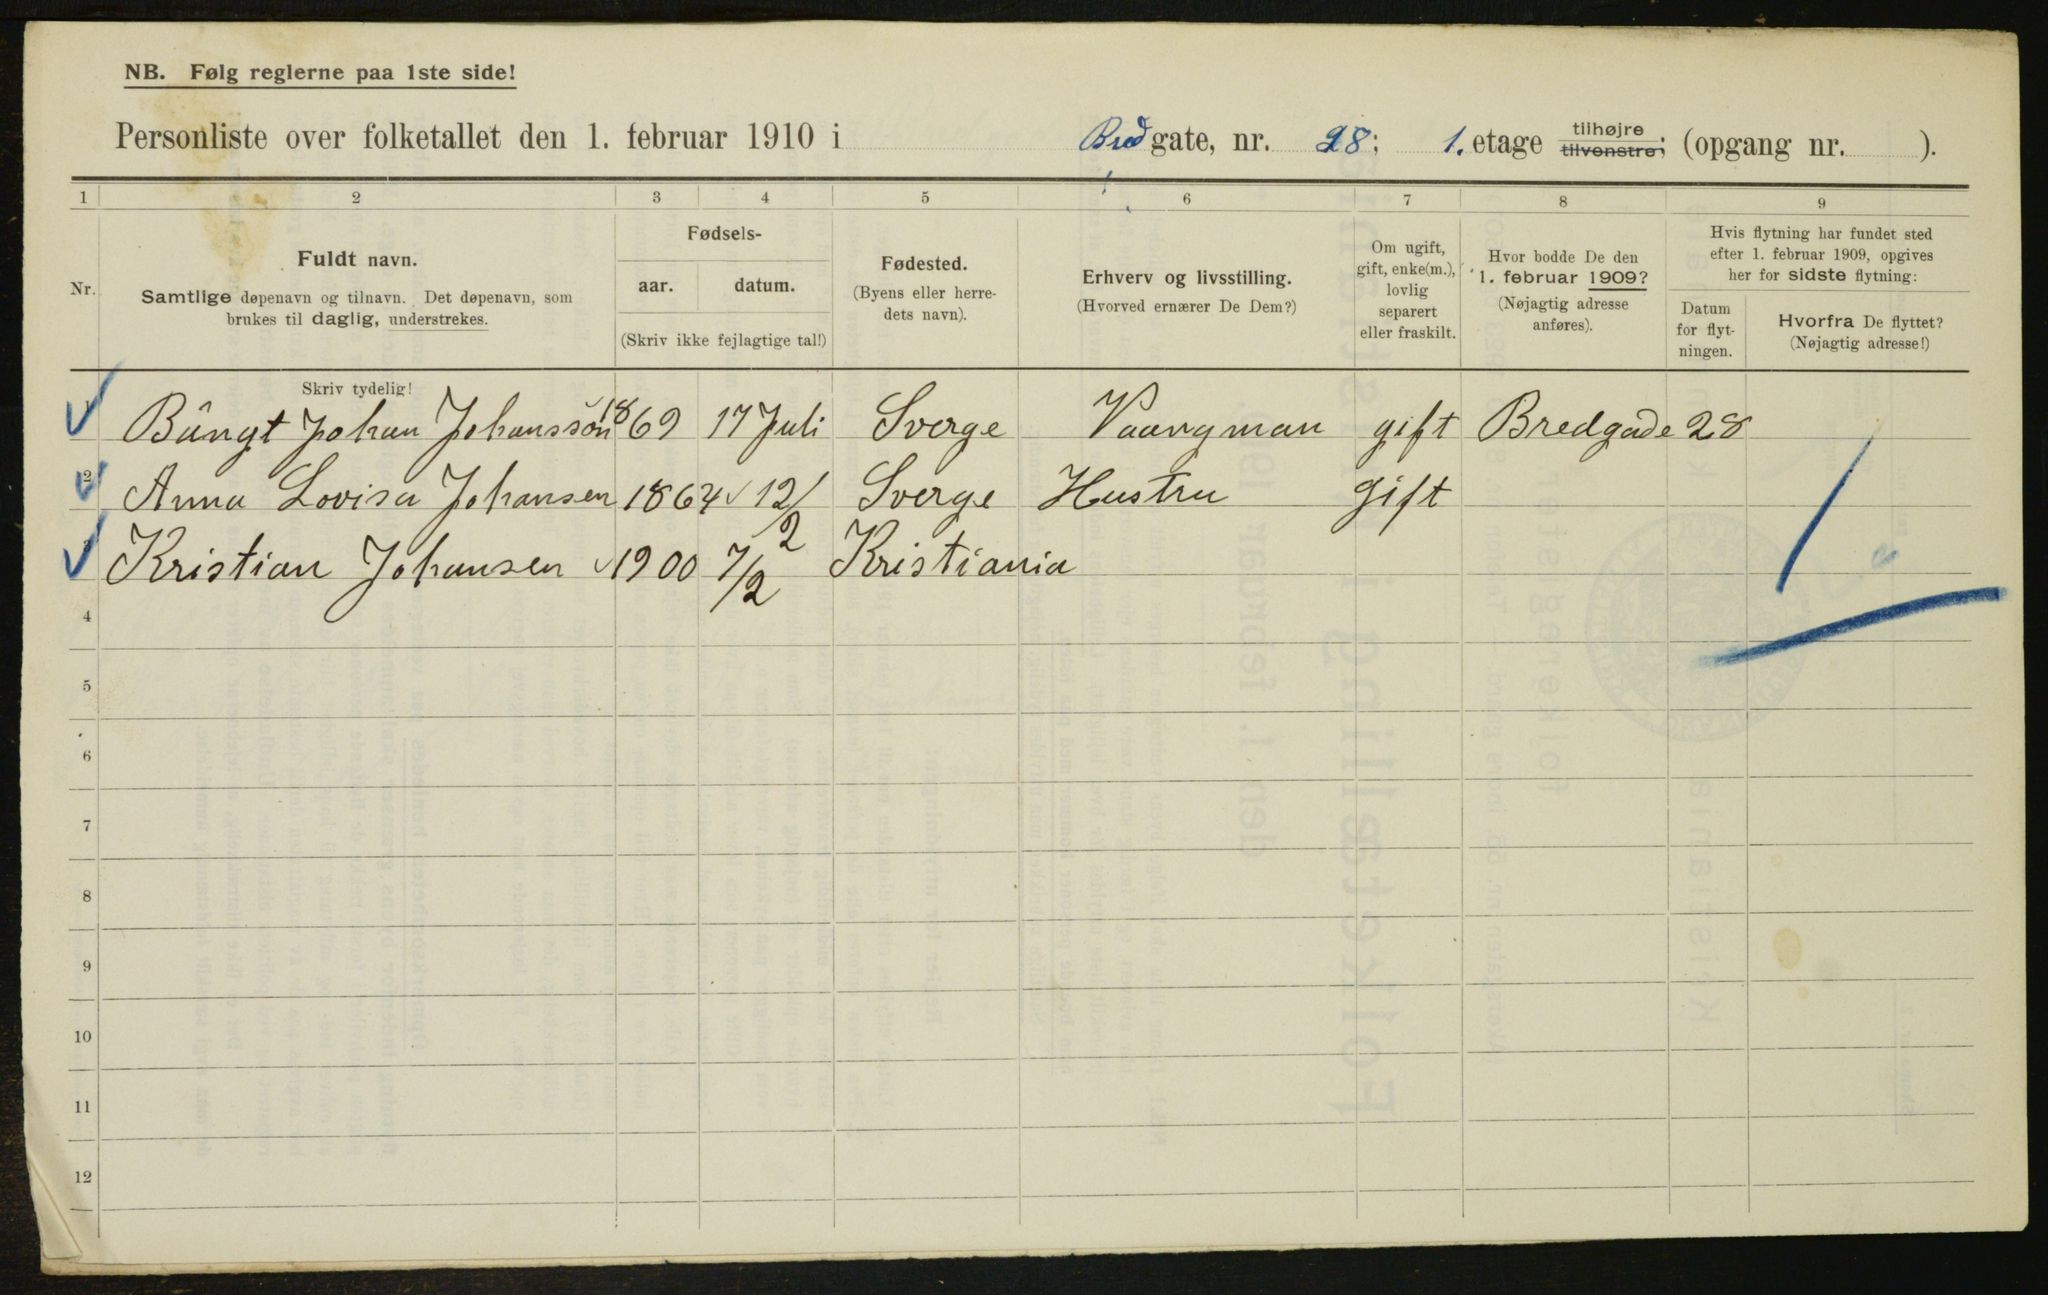 NB. Følg reglerne paa 1ste side!
Personliste over folketallet den 1. februar 1910 i Bredgate, nr. 28; 1. etage tilhøjre tilvenstre; (opgang nr. ).
1 2 3 4 5 6 7 8 9
Nr.
Fuldt navn.
Samtlige døpenavn og tilnavn. Det døpenavn, som
brukes til daglig, understrekes.
Fødsels-
aar. datum.
(Skriv ikke fejlagtige tal!)
Fødested.
(Byens eller herre-
dets navn).
Erhverv og livsstilling.
(Hvorved ernærer De Dem?)
Om ugift,
gift, enke(m.),
lovlig
separert
eller fraskilt.
Hvor bodde De den
1. februar 1909?
(Nøjagtig adresse
anføres).
Hvis flytning har fundet sted
efter 1. februar 1909, opgives
her for sidste flytning:
Datum
for flyt-
ningen.
Hvorfra De flyttet?
(Nøjagtig adresse!)
Skriv tydelig!
1 Bängt Johan Johansson 1869 17 Juli Sverge Vaangman gift Bredgade 28
2 Anna Lovisa Johansen 1864 12/2 Sverge Hustru gift
3 Kristian Johansen 1900 7/2 Kristiania
4
5
6
7
8
9
10
11
12